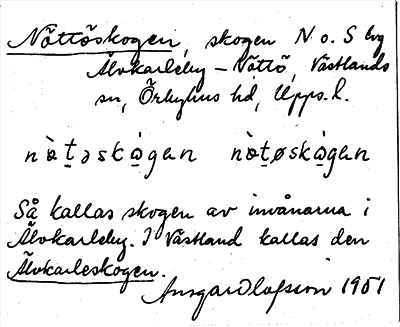 Nöttöskogen, skogen N. o. S lvg
Älvkarleby – Nöttö, Västlands
sn, Örbyhus hd, Upps. l.
nò̀t̠əskò̠gən nò̀t̠øskò̠gən
Så kallas skogen av invånarna i
Älvkarleby. I Västland kallas den
Älvkarleskogen.
Ansgar Olofsson 1951